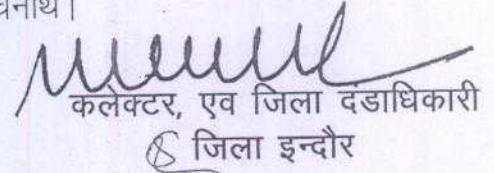 कलेक्टर, एव जिला दंडाधिकारी
जिला इन्दौर